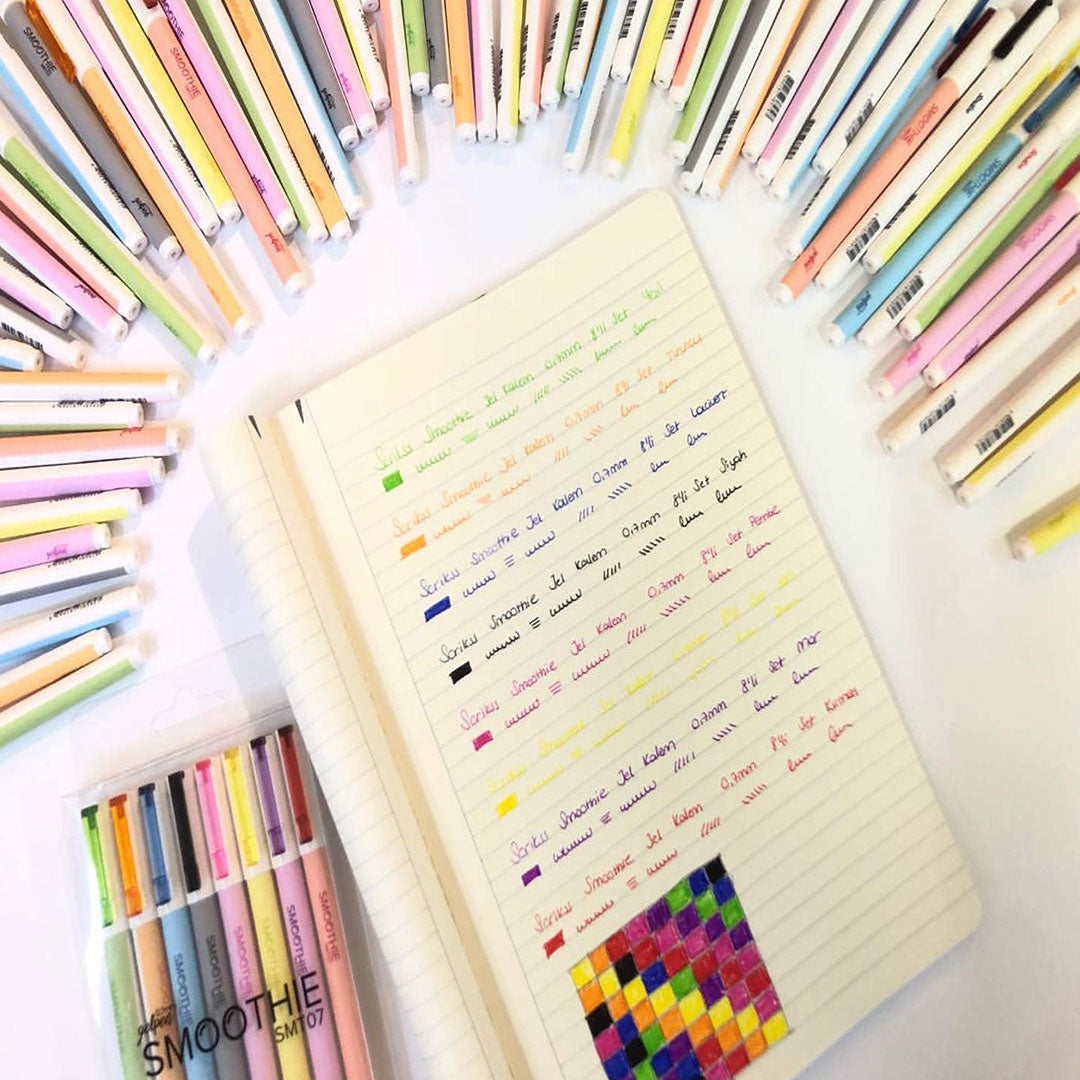 SMOOTHIE
SMOOTHIE
SMOOTHIE
SMOOTHIE
Scrikss Smoothie Jel Kalem 0.7mm 8'li Set Yeşil
Scrikss Smoothie Jel Kalem 0.7mm 8'li Set Turuncu
Scrikss Smoothie Jel Kalem 0.7mm 8'li Set Lacivert
Scrikss Smoothie Jel Kalem 0.7mm 8'li Set Siyah
Scrikss Smoothie Jel Kalem 0.7mm 8'li Set Pembe
Scrikss Smoothie Jel Kalem 0.7mm 8'li Set
Scrikss Smoothie Jel Kalem 0.7mm 8'li Set Mor
Scrikss Smoothie Jel Kalem 0.7mm 8'li Set Kırmızı
SMOOTHIE
SMOOTHIE
SMOOTHIE
SMOOTHIE
SMOOTHIE
gelpen
SMOOTHIE
SMT07